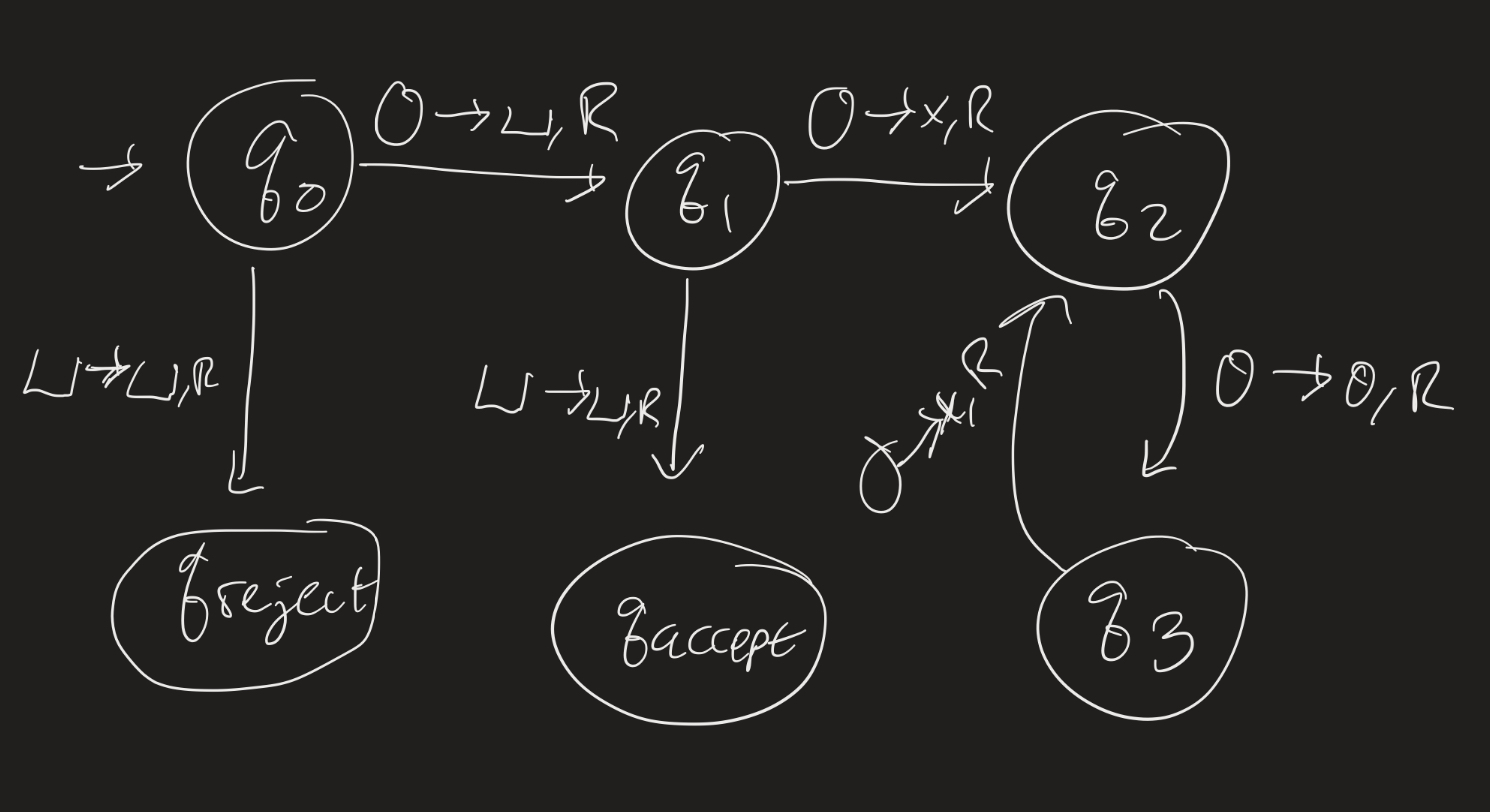 → q0 0 → ⊔, R q1 0 → x, R q2
⊔ → ⊔, R ⊔ → ⊔, R 0 → x, R 0 → 0, R
qreject qaccept q3